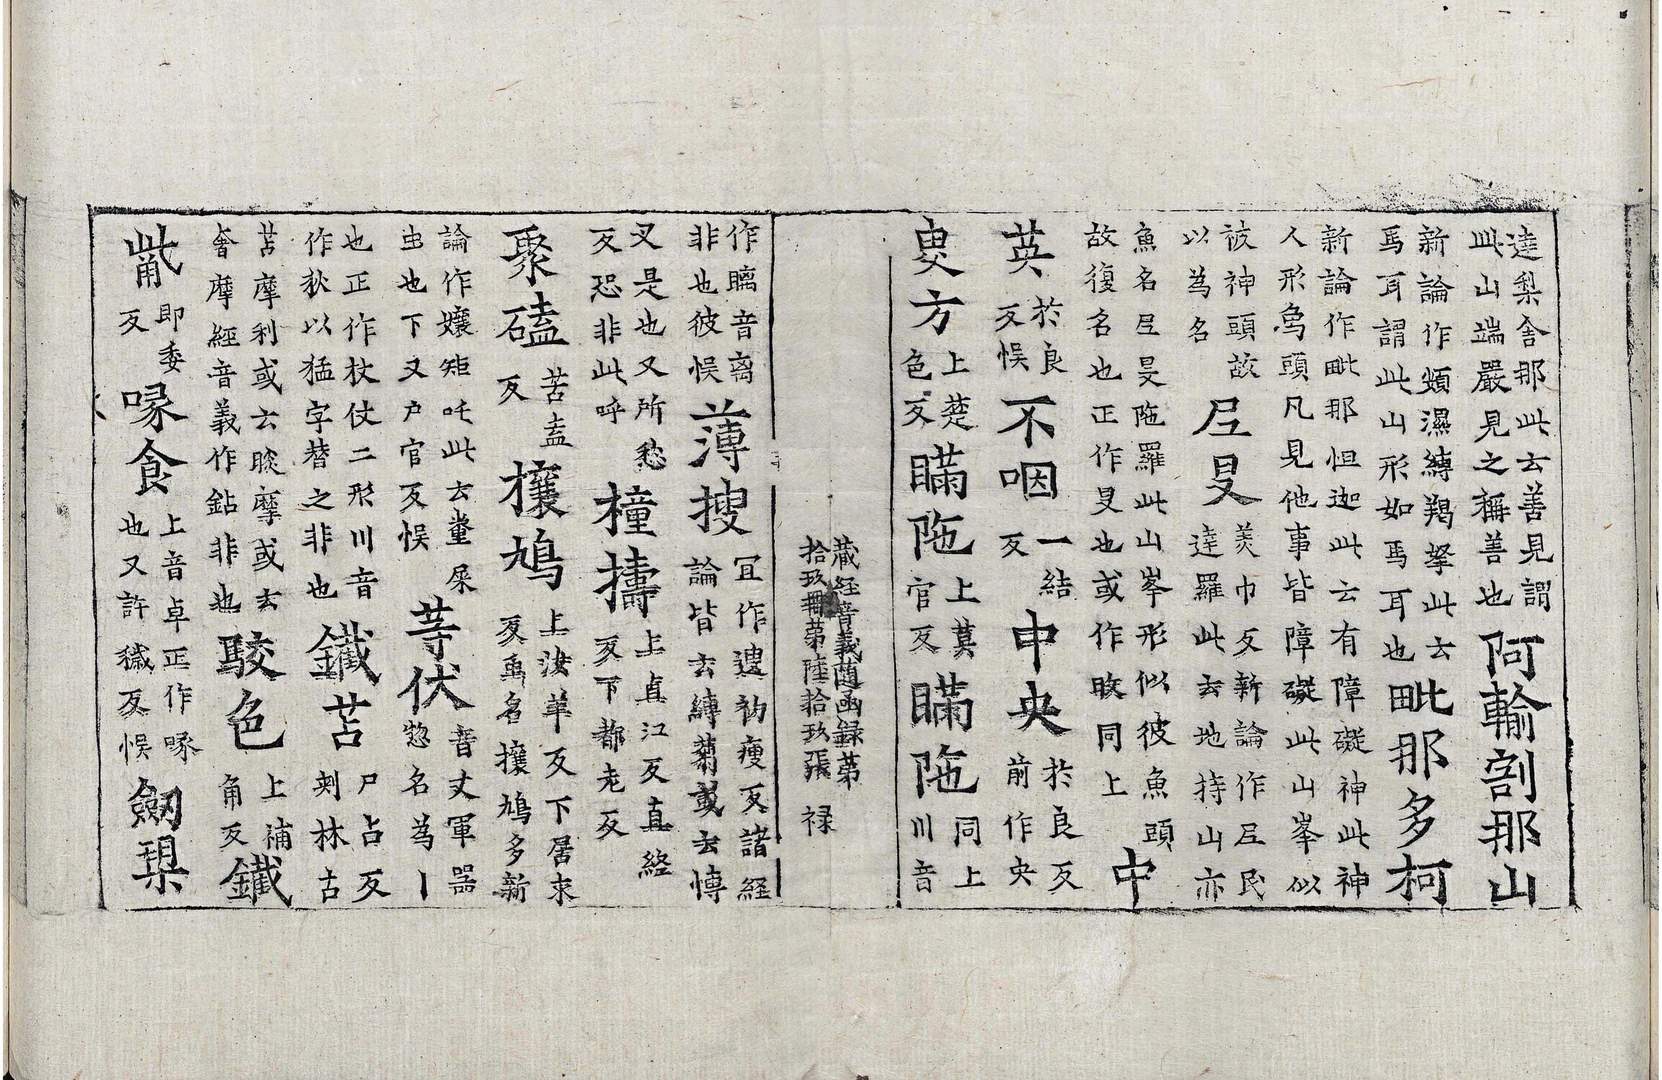 達梨舍那此云善見謂
此山端嚴見之稱善也
阿輸割那山
新論作頞濕縛羯拏此云
馬耳謂此山形如馬耳也
毗那多柯
新論作毗那怛迦此云有障礙神此神
人形鳥頭凡見他事皆障礙此山峯似
彼神頭故
以為名
𡰱旻
羙巾反新論作𡰱民
達羅此云地持山亦
魚名𡰱旻陁羅此山峯形似彼魚頭
故復名也正作旻也或作旼同上
中
英
於良
反悮
不咽
一結
反
中央
於良反
前作央
㕅方
上楚
色反
瞞陁
上莫
官反
瞞陁
同上
川音
藏経音義随函録第
拾玖冊第陸拾玖張 禄
作䁹音离
非也彼悮
薄搜
冝作䢇初瘦反諸経
論皆云縛蒭或云愽
叉是也又所愁
反恐非此呼
橦擣
上直江反直絳
反下都老反
聚磕
苦盍
反
攘鳩
上汝羊反下居求
反禹名攘鳩多新
論作孃矩吒此云糞屎
虫也下又户官反悮
䓁伏
音丈軍器
惣名為丨
也正作杖仗二形川音
作狄以猛字替之非也
鐵苫
尸占反
刾林古
苫摩利或云睒摩或云
奢摩經音義作鉆非也
駮色
上補
角反
鐵
㭰
即委
反
喙食
上音卓正作啄
也又許穢反悮
劒㮚